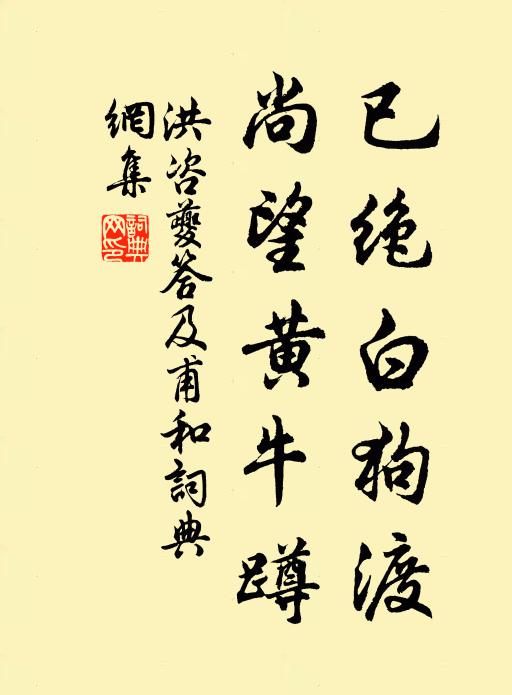 已绝白狗渡
尚望黄牛蹲
洪咨夔答及甫和詞典
網集
詞典
网印